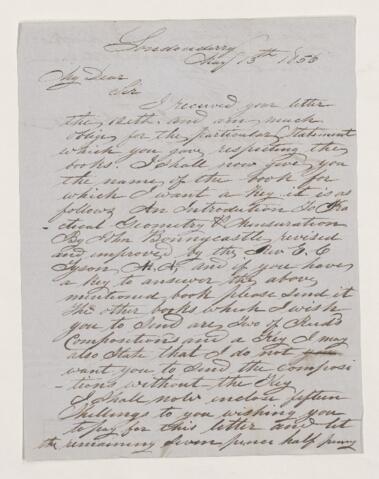 Londonderry
May 15th 1855
My Dear
Sir
I received your letter
the 12th and am much
oblige for the particular Statement
which you gave respecting the
books. I shall now give you
the name of the book for
which I want a Key it is as
follows An Introduction To Pra
ctical Geometry & Mensuration
By John Bonnycastle revised
and improved by the Rev E. C
Tyson M. A. and if you have
a Key to answer the above
mentioned book please send it
The other books which I wish
you to send are two of
Compositions and a Key I may
also State that I do not
want you to Send the Composi
-tions without the Key
I shall now inclose fifteen
Shillings to you wishing you
to pay for this letter and let
the remaining seven pence half penny